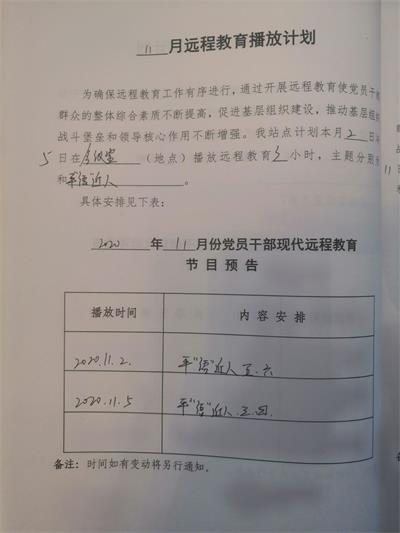 11 月远程教育播放计划
为确保远程教育工作有序进行，通过开展远程教育使党员干
群众的整体综合素质不断提高，促进基层组织建设，推动基层组织
战斗堡垒和领导核心作用不断增强。我站点计划本月 2 日
5 日在会议室（地点）播放远程教育 小时，主题分别
和 平"语"近人 。
具体安排见下表：
2020 年 11 月份党员干部现代远程教育
节目预告
播放时间 内容安排
2020.11.2. 平"语"近人 五.六
2020.11.5 平"语"近人 三.四.
备注：时间如有变动将另行通知。